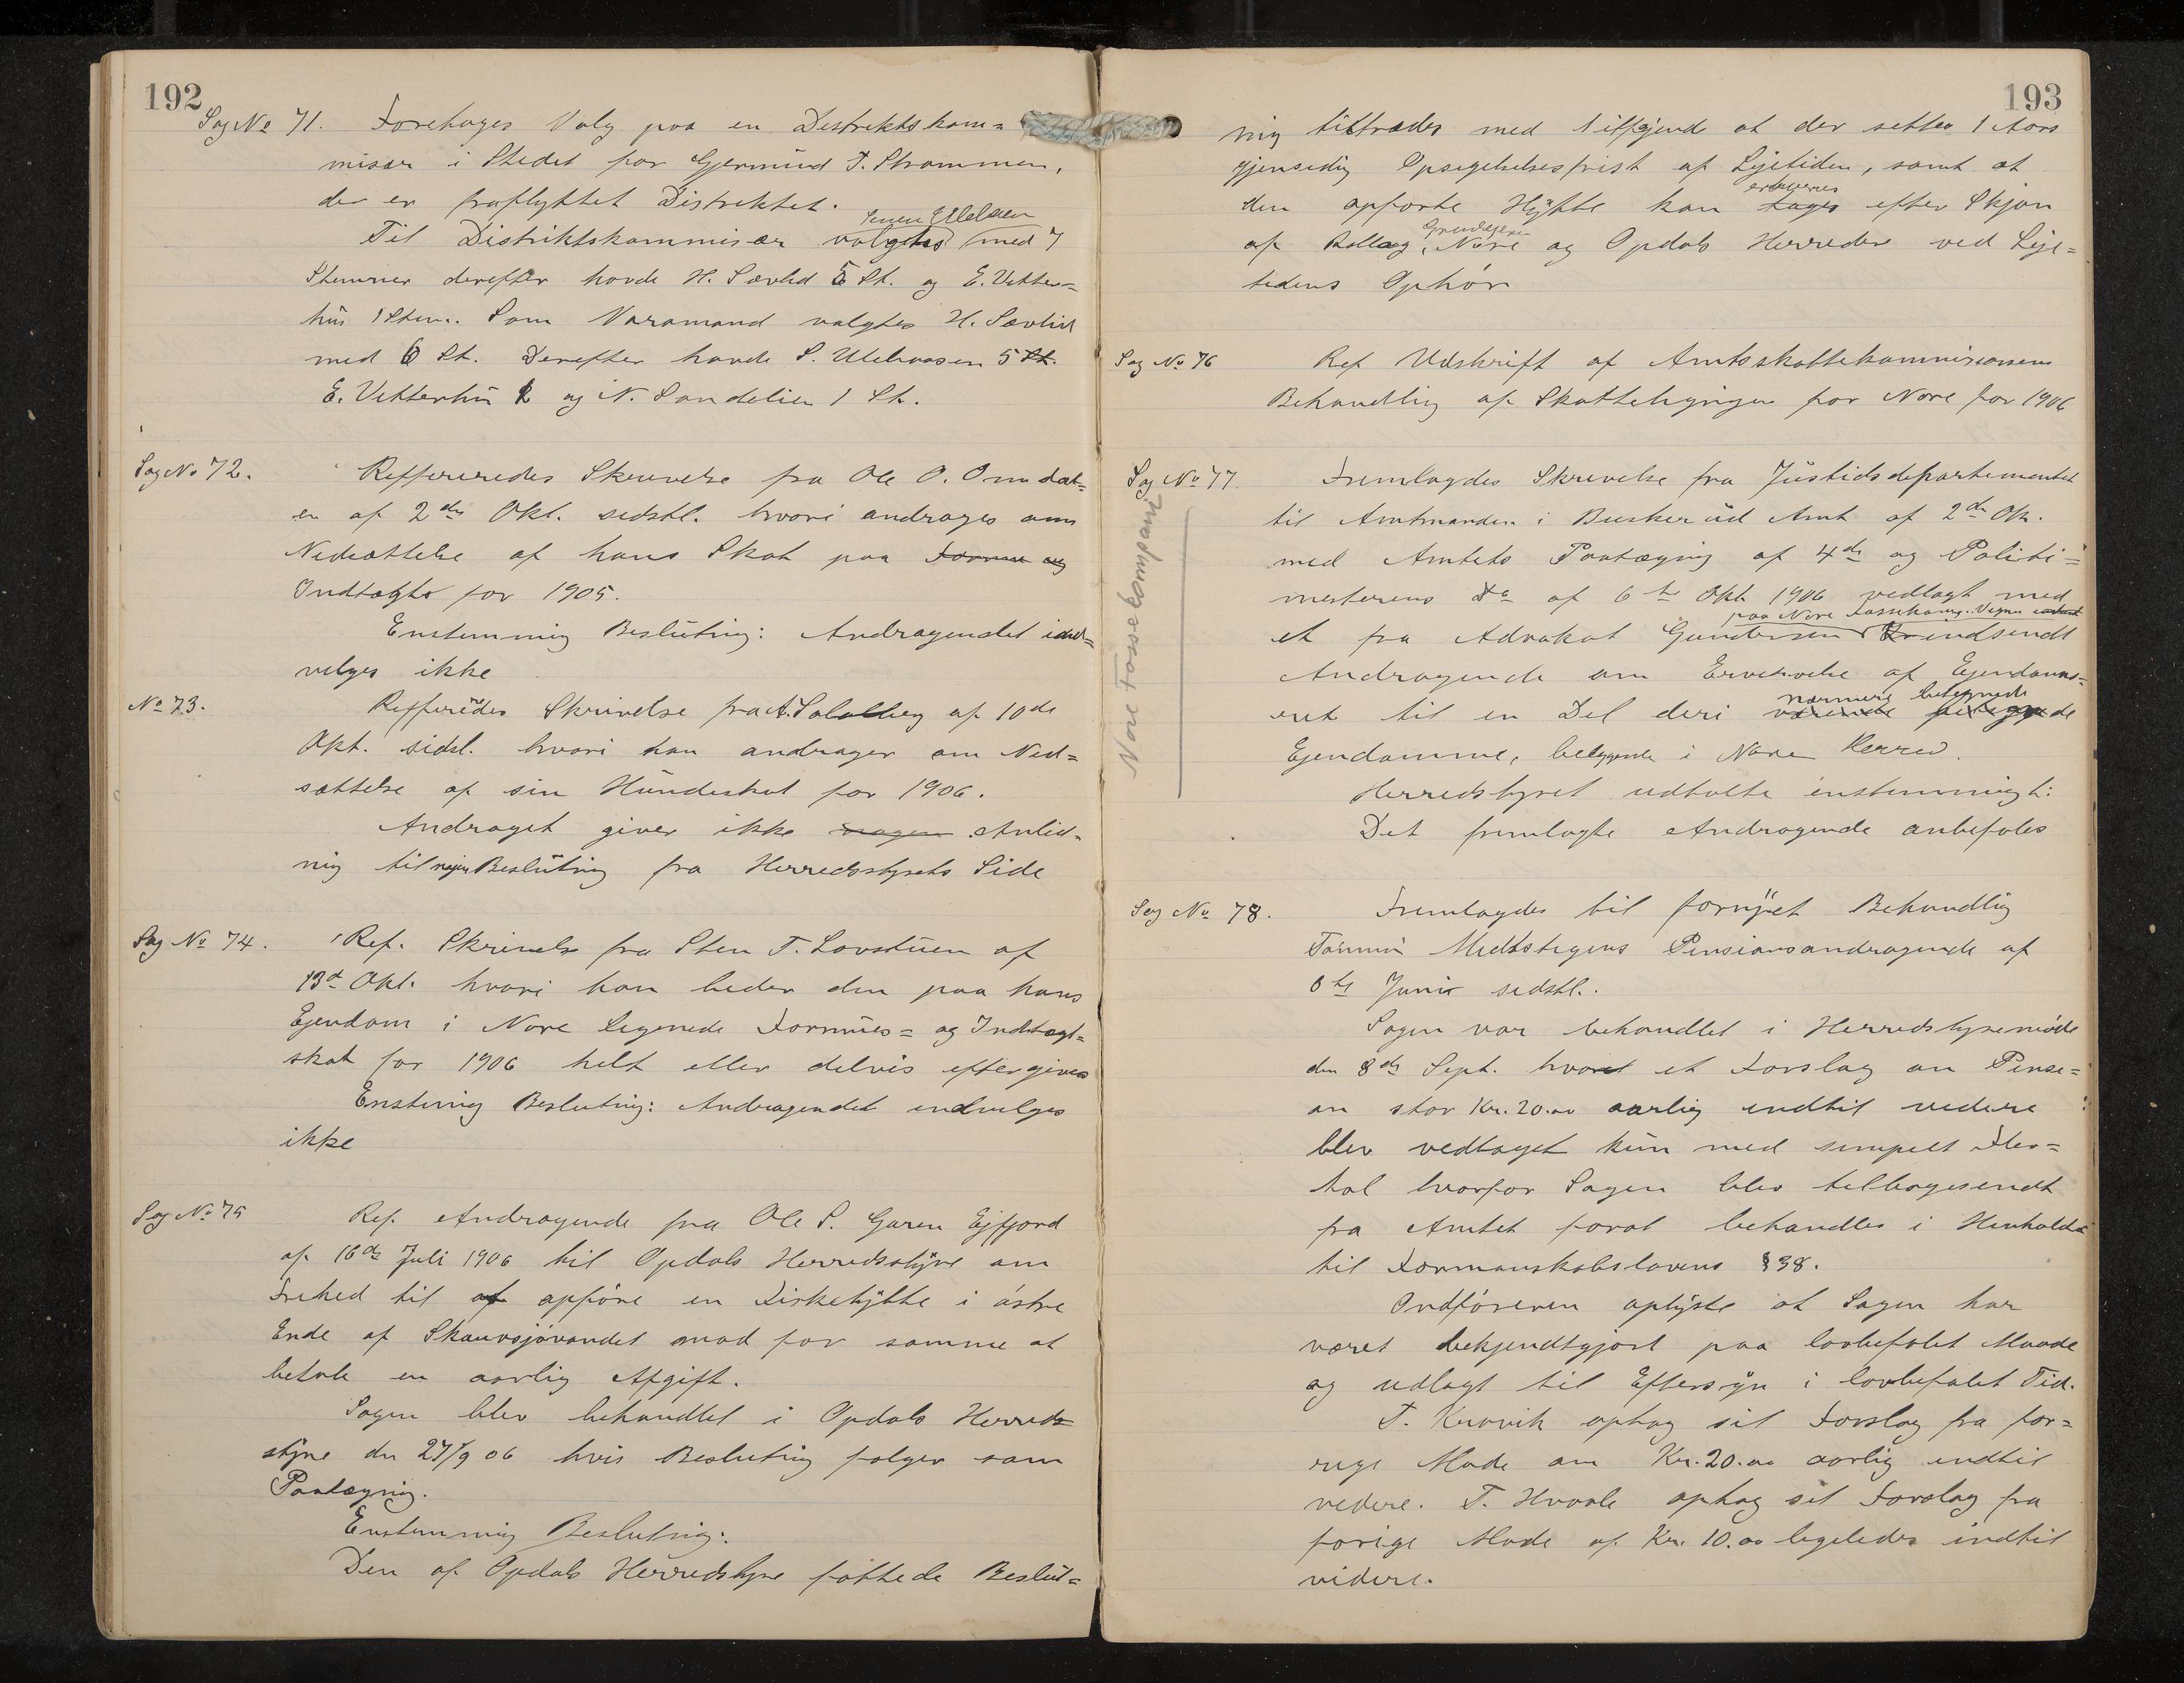 192
Sag No 71. Foretages Valg paa en Destriktskom=
misær i Stedet for Gjermund T. Strømmen,
der er fraflyttet Distriktet.
Til Distriktskommisær valgtes med 7
Stemmer derefter havde H. Sævlid 5 St. og E. Vetter=
hus 1 Stem. Som Varamand valgtes H. Sævlid
med 6 St. Derefter havde S. Ulehaasen 5 St.
E. Vetterhus og N. Sandelien 1 St.
Sag No 72. Reffereredes Skrivelse fra Ole O. dat=
er af 2den Okt. sidstl. hvori andrages om
Nedsættelse af hans Skat paa Formue og
Indtægt for 1905.
Enstemmig Beslutning: Andragendet ind=
vilges ikke
No 73. Reffereredes Skrivelse fra A. af 10de
Okt. sidstl. hvori han andrager om Ned=
sættelse af sin Hundeskat for 1906.
Andraget giver ikke nogen Anled=
ning til nogen Beslutning fra Herredsstyrets Side
Sag No 74. Ref. Skrivelse fra Sten T. Lovstuen af
13de Okt. hvori han beder den paa hans
Ejendom i Nore lignede Formues= og Indtægt=
skat for 1906 helt eller delvis eftergives
Enstemig Beslutning: Andragendet indvilges
ikke
Sag No 75 Ref. Andragende fra Ole S. Garen Ejfjord
af 16de Juli 1906 til Opdals Herredsstyre om
Frihed til at opføre en Fiskehytte i østre
Ende af Skaursjøvandet mod for samme at
betale en aarlig Afgift.
Sagen blev behandlet i Opdals Herreds=
styre den 27/9 06 hvis Beslutning følger som
Paategning.
Enstemmig Beslutning:
Den af Opdals Herredsstyre fattede Beslut=
193
ning tiltrædes med Tilføjende at der settes 1 Aars
gjensidig Opsigelsesfrist af Lejetiden, samt at
erhverves
den opførte Hytte kan tages efter Skjøn
Grundejere
af Rollag, Nore og Opdals Herreder ved Leje=
tidens Ophør
Sag No 76 Ref Udskrift af Amtsskattekommissionens
Behandling af Skatteligningen for Nore for 1906
Nore Fossekompani
Sag No 77. Fremlagdes Skrivelse fra Justidsdepartementet
til Amtmanden i Buskerud Amt af 2den Okt.
med Amtets Paategning af 4de og Politi=
mesterens Do af 6te Okt 1906 vedlagt med
paa Nore Fossekomp. Vegne
et fra Advokat Gundersen indsendt
Andragende om Erhvervelse af Ejendoms=
nærmere betegnede
ret til en Del deri værende
Ejendomme, beliggende i Nore Herred.
Herredstyret udtalte enstemmigt:
Det fremlagte Andragende anbefales
Sag No 78. Fremlagdes til fornyet Behandling
Medtstigens Pensionsandragende af
6te Juni sidstl.
Sagen var behandlet i Herredstyremøde
den 8de Sept. hvoret et Forslag om Pensi=
on stor Kr. 20.00 aarlig indtil videre
blev vedtaget kun med simpelt Fler=
tal hvorfor Sagen blev tilbagesendt
fra Amtet forat behandles i Henhold
til Formanskabslovens §38.
Ordføreren oplyste at Sagen har
været bekjendtgjort paa lovbefalet Maade
og udlagt til Eftersyn i lovbefalet Tid.
T. Kravik optog sit Forslag fra for=
rige Møde om Kr. 20.00 aarlig indtil
videre. T. Hvaale optog sit Forslag fra
forige Møde af Kr. 10.00 ligeledes indtil
videre.